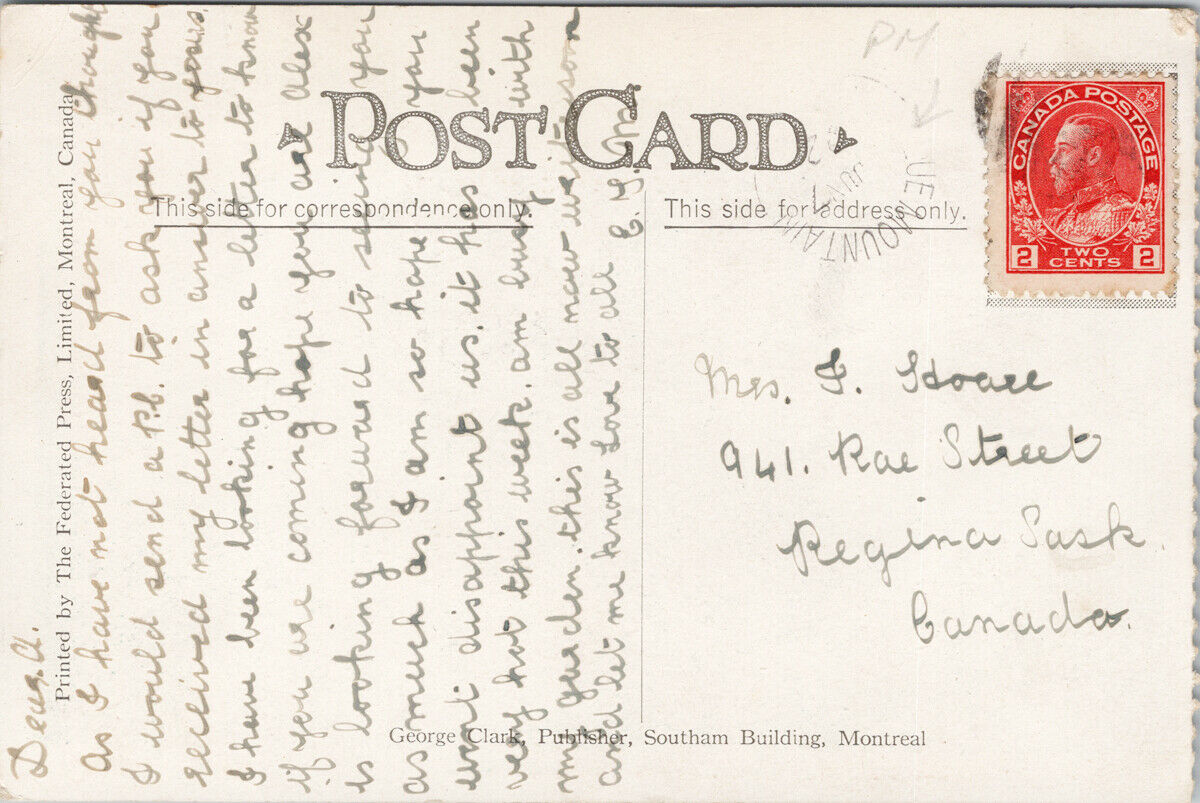 PM
POST CARD
This side for correspondence only.
This side for address only.
CANADA POSTAGE
2 TWO CENTS 2
UE MOUNTAIN
JUN
Printed by The Federated Press, Limited, Montreal, Canada
Dear A.
as I have not heard from you thought
I would send a P.C. to ask you if you
received my letter in answer to yours.
I have been looking for a letter to know
if you are coming hope you are alex
is looking forward to seeing you
as much as I am so hope you
wont disappoint us. it has been
very hot this week. am busy with
my garden. this is all now write soon
and let me know Love to all E. G.
Mrs. F. Hoare
941. Rae Street
Regina Sask.
Canada.
George Clark, Publisher, Southam Building, Montreal